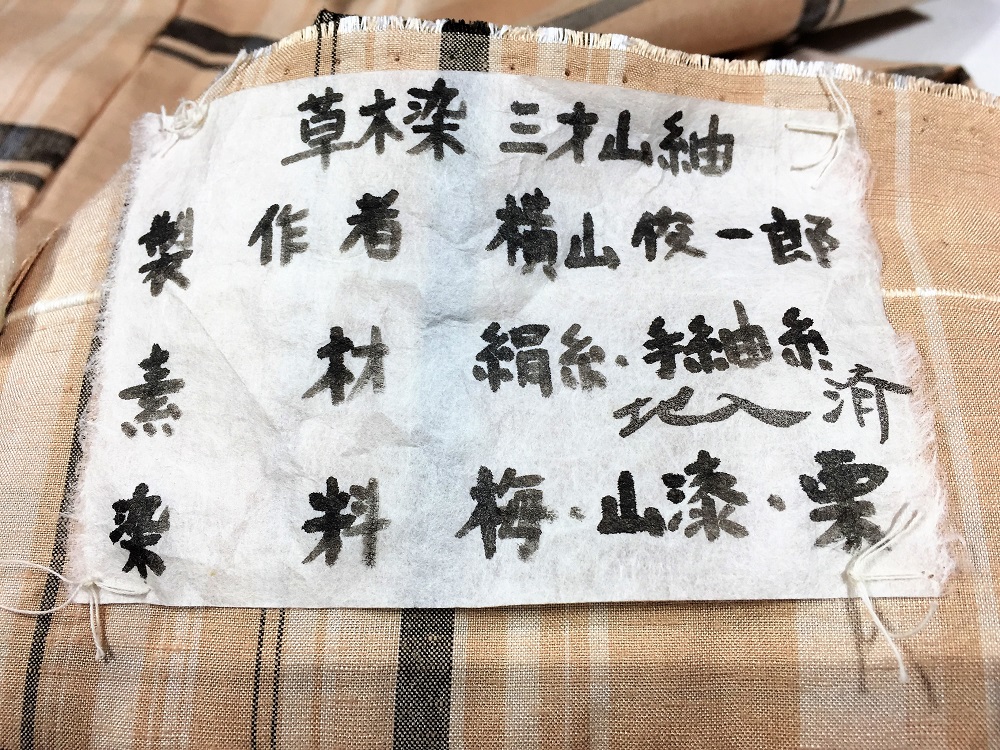 草木染 三才山紬
製作者 横山俊一郎
素材 絹糸・手紬糸
地入済
染料 梅・山漆・栗